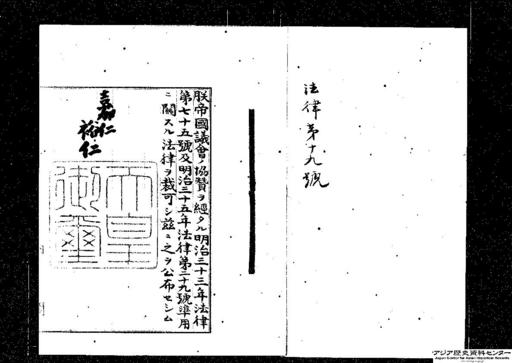 法律第十九號
朕帝國議會ノ協賛ヲ經タル明治三十三年法律
第七十五號及明治三十五年法律第二十九號準用
ニ關スル法律ヲ裁可シ茲ニ之ヲ公布セシム
嘉仁
裕仁
天皇御璽
アジア歴史資料センター
Japan Center for Asian Historical Records